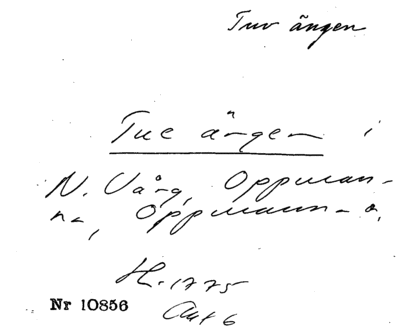 Tuv ängen
Tue ängen i
N. Vång, Oppman-
na, Oppmanna s.
H. 1775
Akt 6
Nr 10856